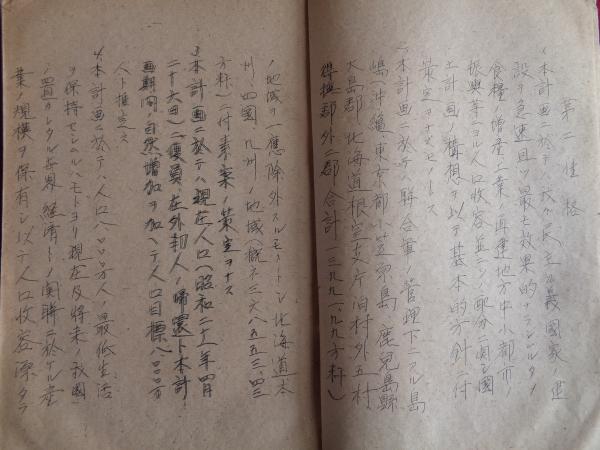 第二 性格
一、本計画ニ於テハ我ガ民主々義國家ノ建
設ヲ急速且ツ最モ效果的ナラシムル
食糧ノ増産工業ノ再建地方中小都市
振興等ニヨル人口收容並ニソノ配分ニ関シ國
土計画ノ構想ヲ以テ基本的方針ニ付
策定ヲナスモノトス
二、本計画ニ於テハ聯合軍ノ管理下ニアル島
嶼(沖繩、東京都小笠原島、鹿兒島縣
大島郡、北海道根室支庁泊村外五村
得撫郡外 郡 合計 一三九九一、九九方粁)
ノ地域ヲ一應除外スルモノトシ北海道、本
州、四國、九州ノ地域(概ネ三六八五五三、四三
方粁)ニ付素案ノ策定ヲナス
三、本計画ニ於テハ現在人口(昭和二十一年四月
二十六日)ニ復員、在外邦人ノ帰還ト本計
画期間ノ自然増加ヲ加ヘテ人口目標八〇〇〇万
人ト推定ス
四、本計画ニ於テハ人口八〇〇〇万人ノ最低生活
ヲ保持セシムルハモトヨリ現在及將來ノ我國
ノ置カレタル世界経済トノ関聯ニ於ケル産
業ノ規模ヲ保有シ以テ人口收容源タラ